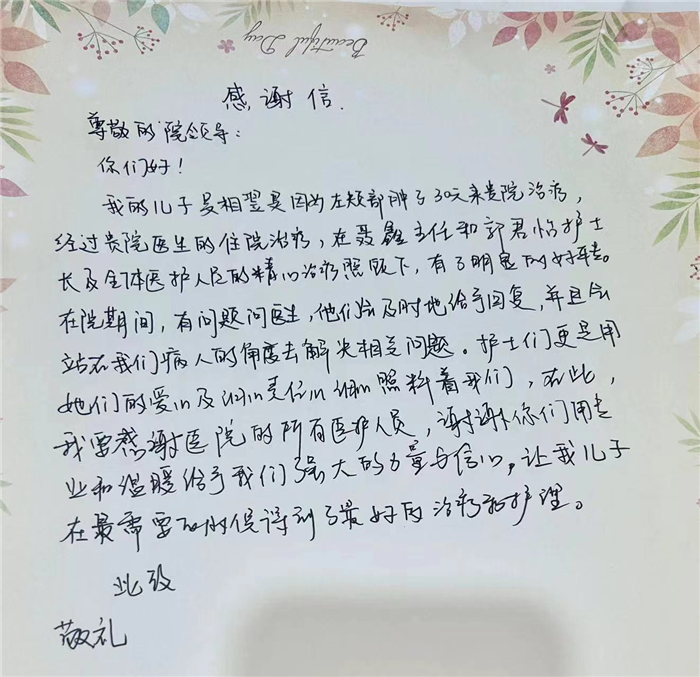 Beautiful Day
感谢信.
尊敬的院领导:
你们好!
我的儿子晏相翌是因为左颊部肿了30天来贵院治疗,
经过贵院医生的住院治疗,在聂鑫主任和郭君怡护士
长及全体医护人员的精心治疗照顾下,有了明显的好转。
在院期间,有问题问医生,他们会及时地给予回复,并且会
站在我们病人的角度去解决相关问题。护士们更是用
她们的爱心及细心责任心细心照料着我们,在此,
我要感谢医院的所有医护人员,谢谢你们用专
业和温暖给予我们强大的力量与信心,让我儿子
在最需要的时候得到了最好的治疗和护理。
此致
敬礼